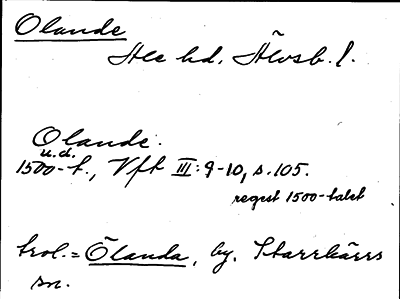 Olande
Ale hd. Älvsb. l.
Olande.
u.d.
1500-t., Vft III: 9-10, s. 105.
regest 1500-talet
trol. = Ölanda, by, Starrkärrs
sn.